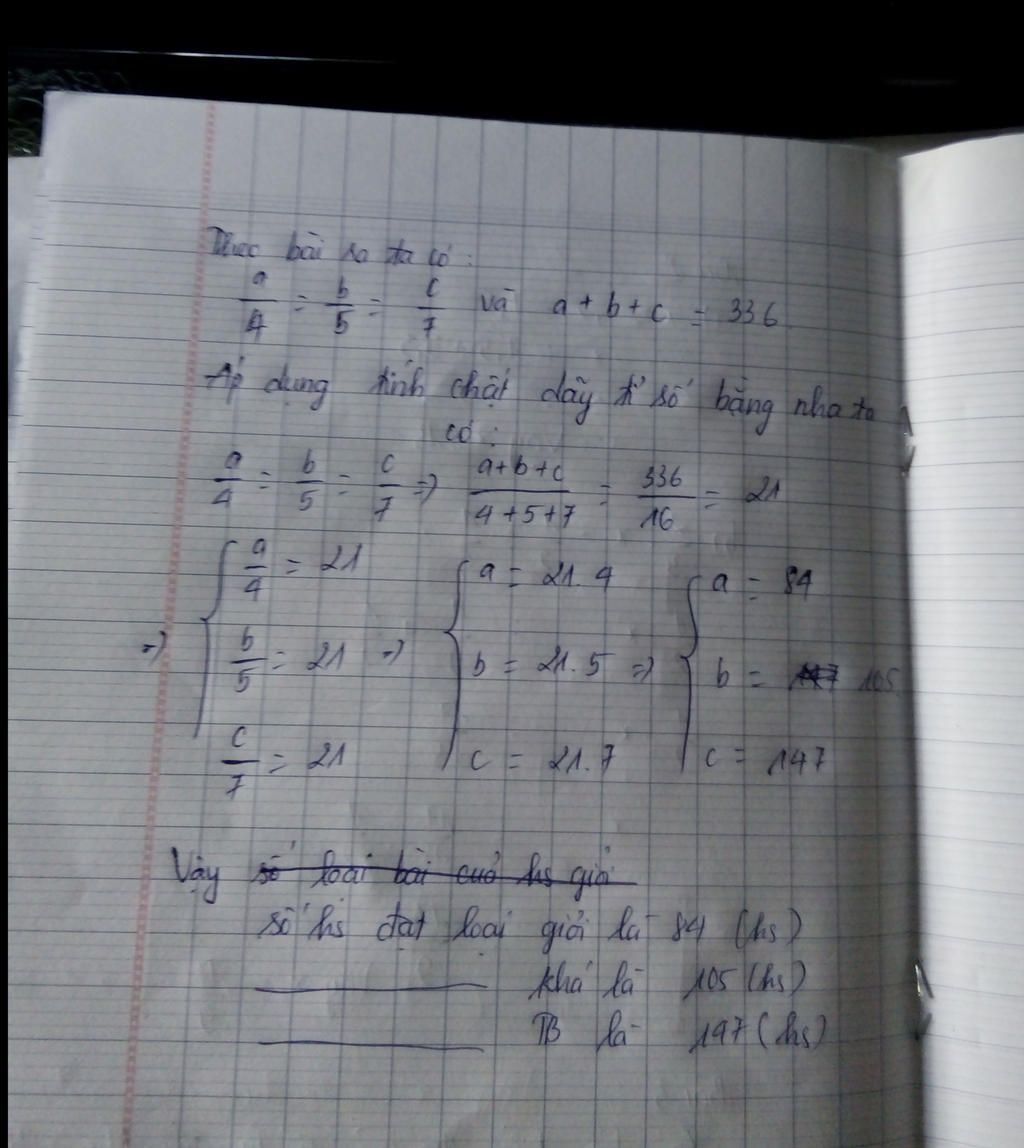 Theo bài ra ta có :
a/4 = b/5 = c/7 và a + b + c = 336
Áp dụng tính chất dãy tỉ số bằng nha ta
có :
a/4 = b/5 = c/7 => (a+b+c)/(4+5+7) = 336/16 = 21
=> { a/4 = 21 { a = 21.4 { a = 84
b/5 = 21 => b = 21.5 => b = 105
c/7 = 21 c = 21.7 c = 147
Vậy số loại bài của hs giỏi
số hs đạt loại giỏi là 84 (hs)
——— khá là 105 (hs)
——— TB là 197 (hs)